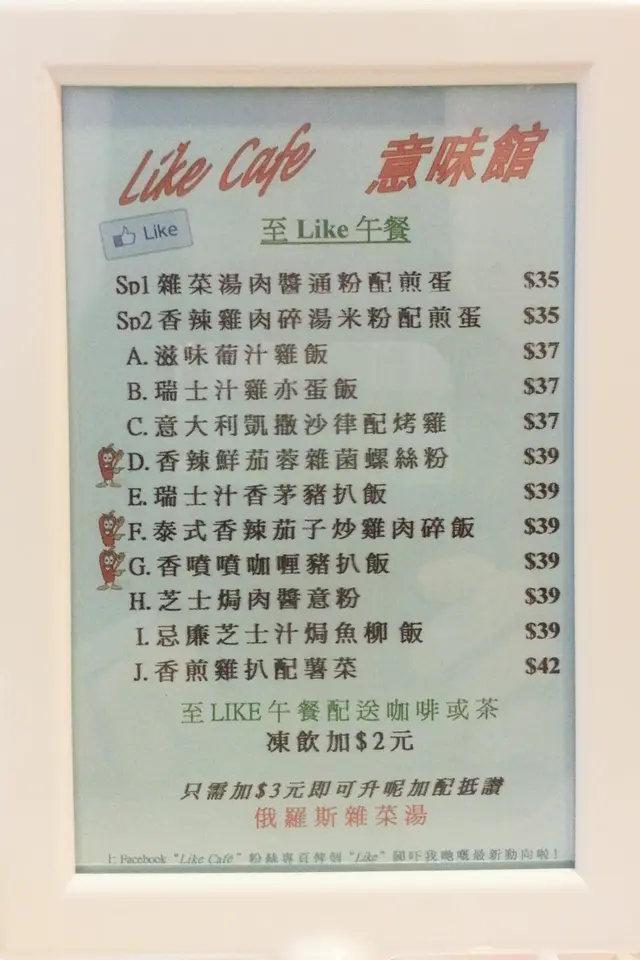 Like Cafe 意味館
Like
至 Like 午餐
Sp1 雜菜湯肉醬通粉配煎蛋 $35
Sp2 香辣雞肉碎湯米粉配煎蛋 $35
A. 滋味葡汁雞飯 $37
B. 瑞士汁雞亦蛋飯 $37
C. 意大利凱撒沙律配烤雞 $37
D. 香辣鮮茄蓉雜菌螺絲粉 $39
E. 瑞士汁香茅豬扒飯 $39
F. 泰式香辣茄子炒雞肉碎飯 $39
G. 香噴噴咖喱豬扒飯 $39
H. 芝士焗肉醬意粉 $39
I. 忌廉芝士汁焗魚柳 飯 $39
J. 香煎雞扒配薯菜 $42
至LIKE午餐配送咖啡或茶
凍飲加$2元
只需加$3元即可升呢加配抵讚
俄羅斯雜菜湯
上 Facebook "Like Cafe" 粉絲專頁俾個 "Like" 睇吓我哋嘅最新動向啦！